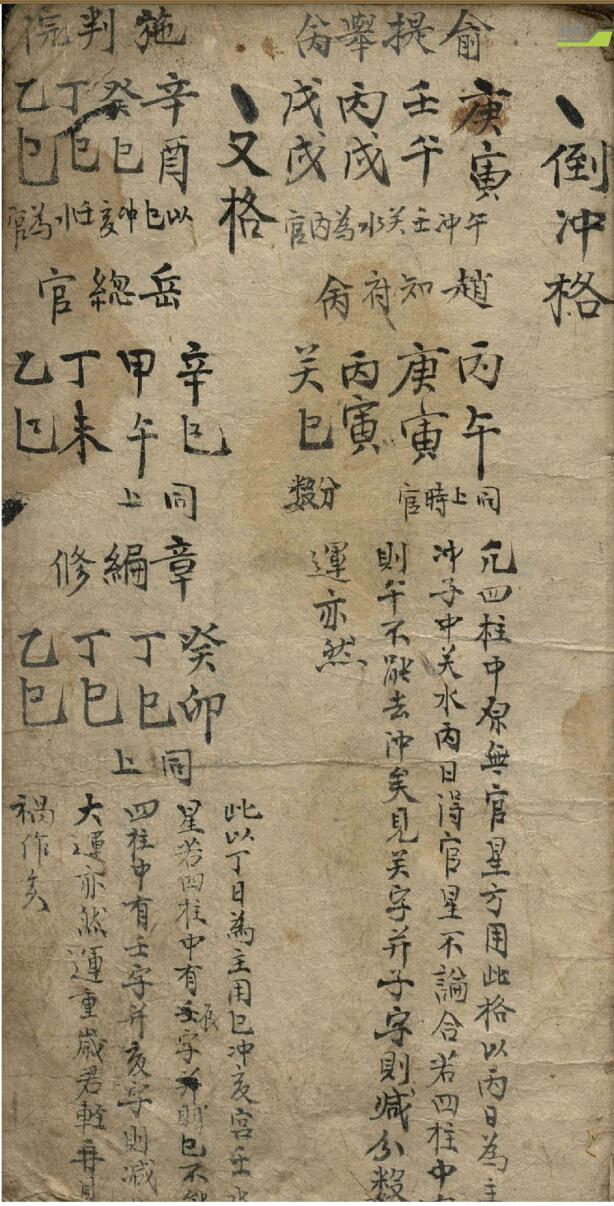 倒冲格
俞提舉命
庚寅
壬午
丙戌
戊戌
午冲壬癸水為丙官
趙知府命
丙午
庚寅
丙寅
癸巳
同上時官分数
凡四柱中原無官星方用此格以丙日為主
冲子中癸水丙日得官星不論合若四柱中有
則午不能去冲矣見癸字并子字則減分数
運亦然
又格
施判院
辛酉
癸巳
丁巳
乙巳
以巳冲亥壬水為官
岳總官
辛巳
甲午
丁未
乙巳
同上
章編修
癸卯
丁巳
丁巳
乙巳
同上
此以丁日為主用巳冲亥宫壬水
星若四柱中有辰字則巳不能
四柱中有壬字并亥字則減
大運亦然運重歲君輕再見
禍作矣